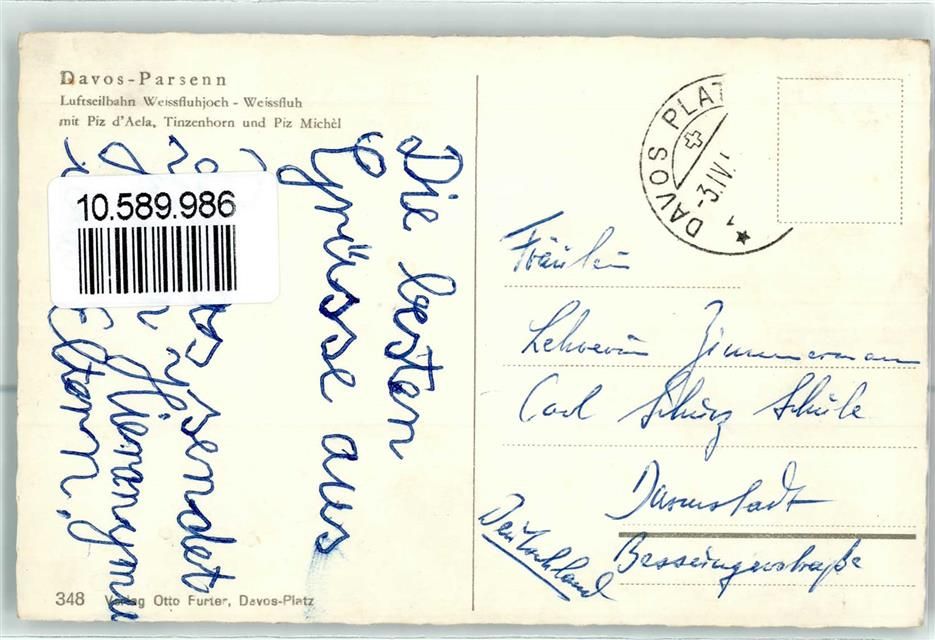 Davos-Parsenn
Luftseilbahn Weissfluhjoch - Weissfluh
mit Piz d'Aela, Tinzenhorn und Piz Michèl
10.589.986
Die besten
Grüsse aus
sendet
Eltern!
348 Verlag Otto Furter, Davos-Platz
DAVOS PLAT
-3.IV.
1
Fräulein
Lehrerin Zimmermann
Carl Schurz Schule
Darmstadt
Bessungerstraße
Deutschland